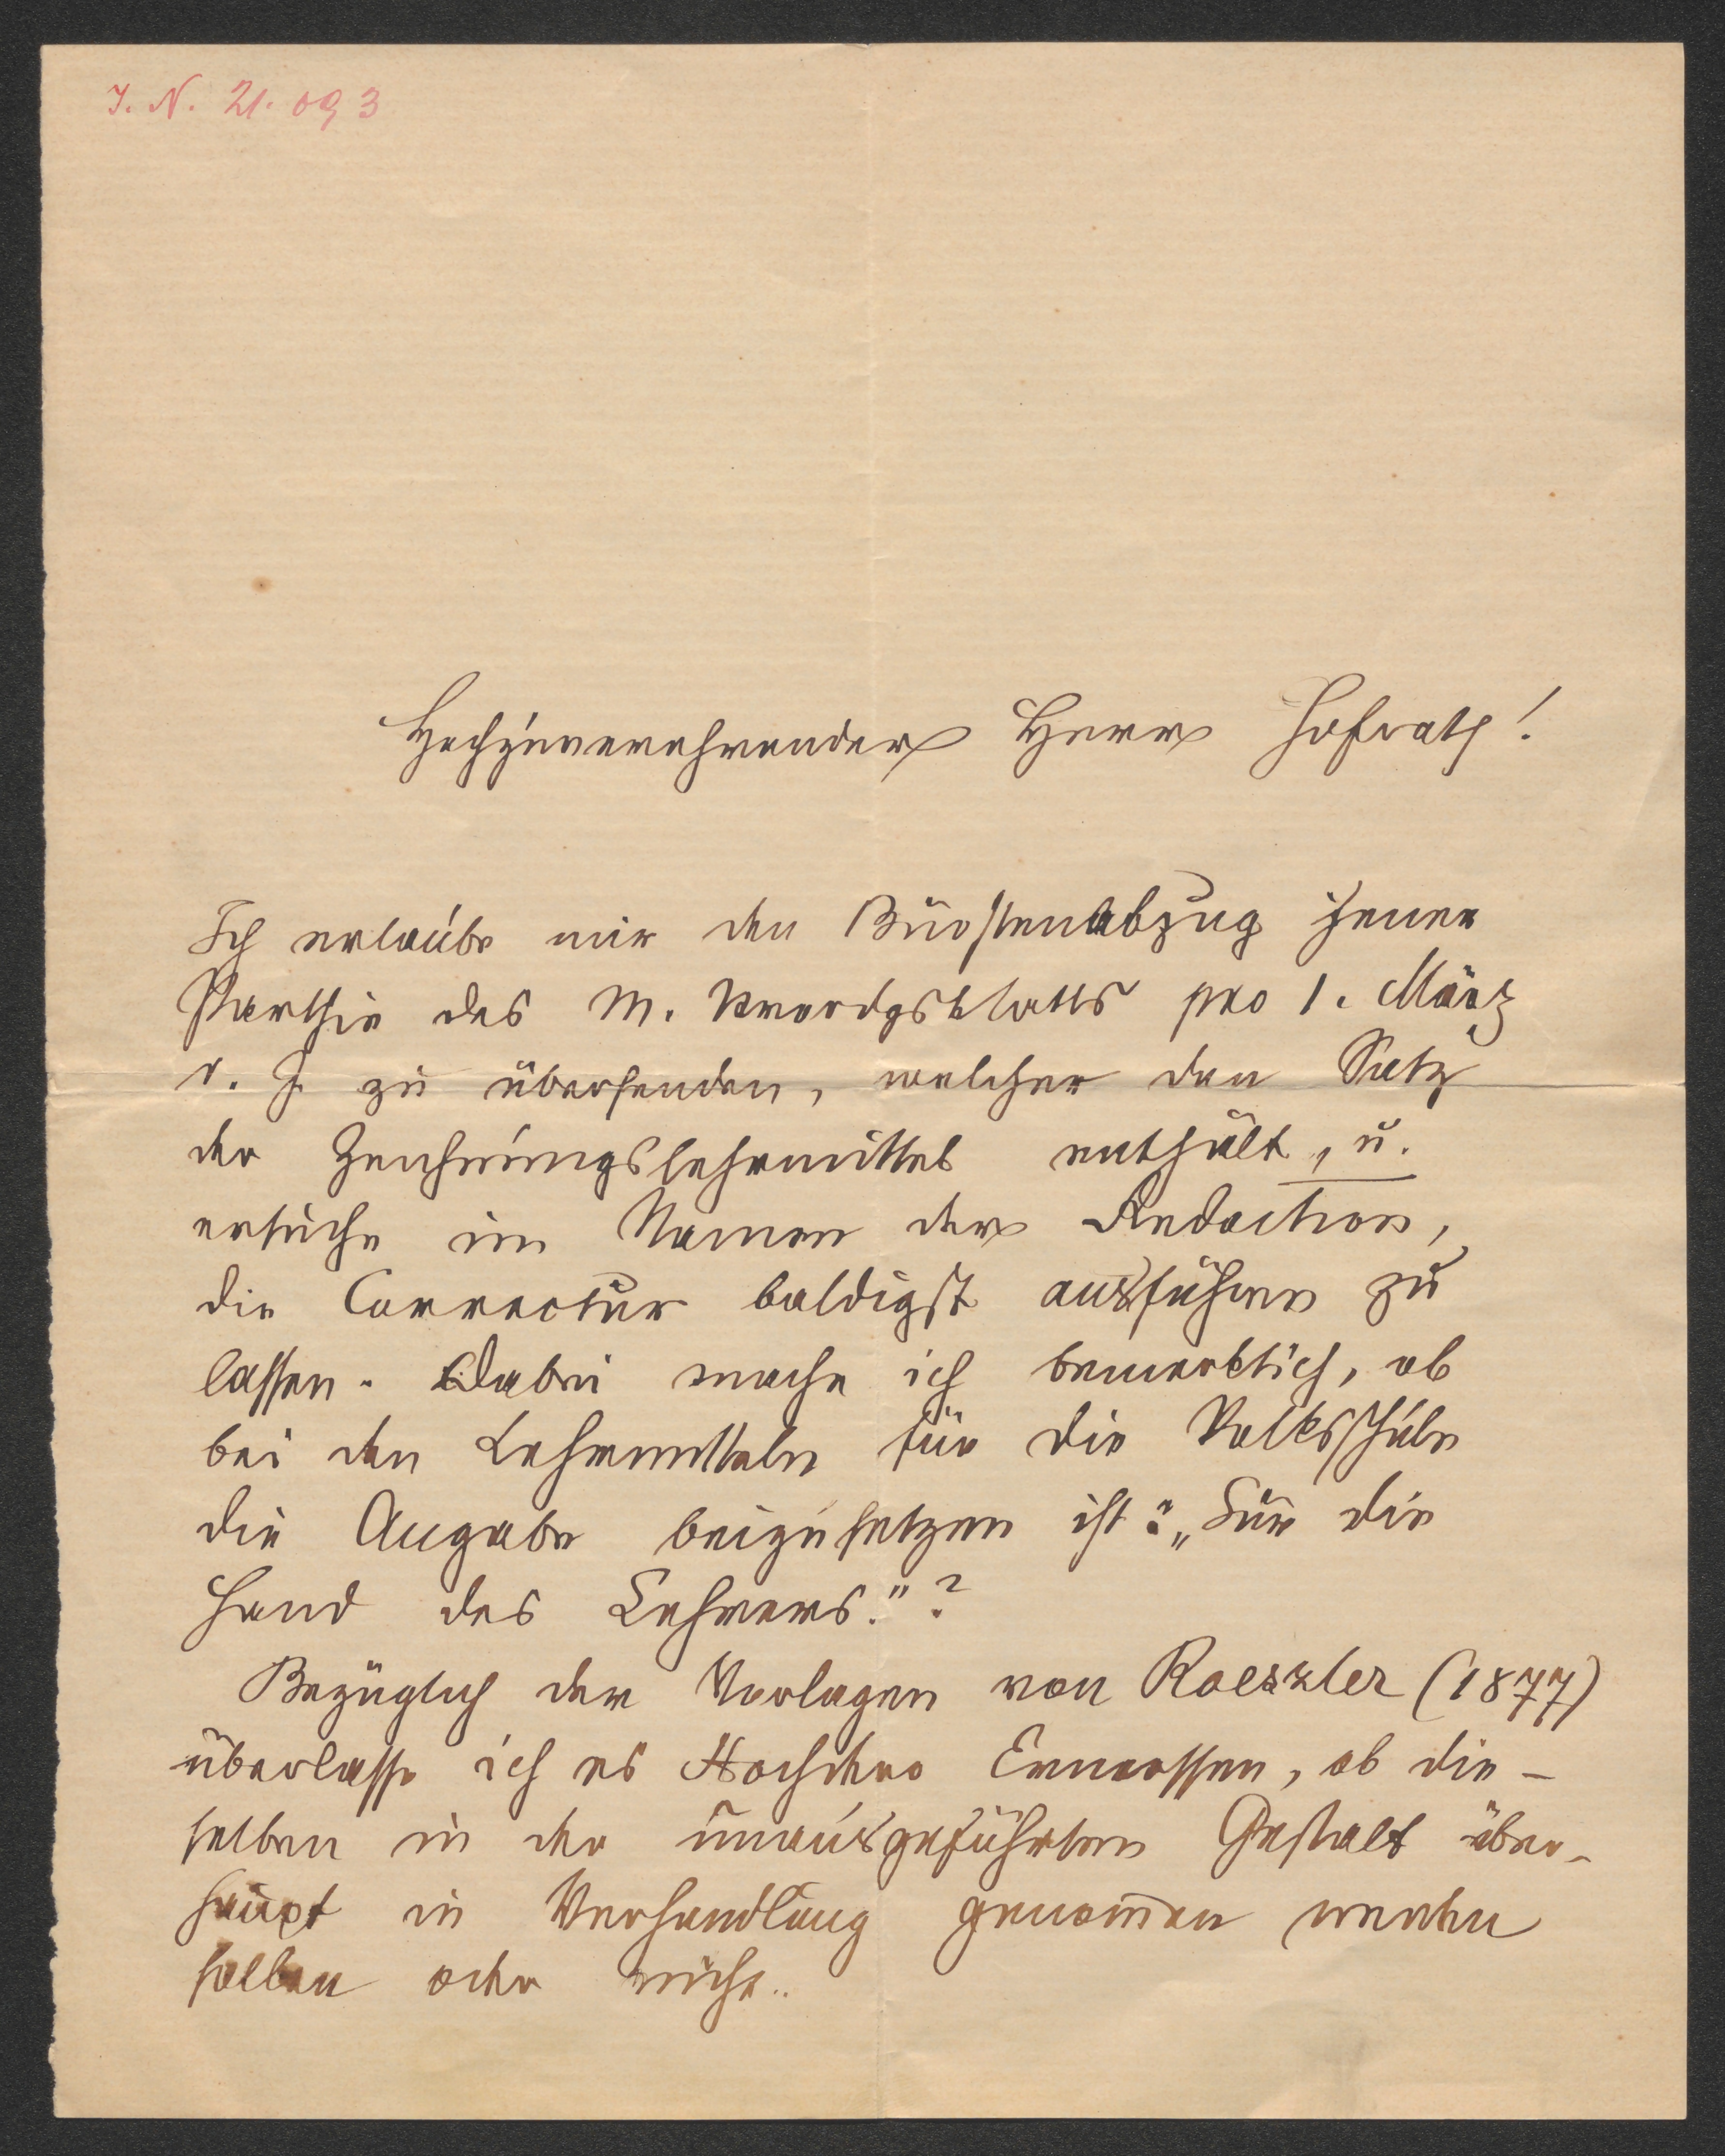 I. N. 21.093
Hochzuverehrender Herr Hofrath!
Ich erlaube mir den Bürstenabzug jener
Parthie des M. Verordgsblatts pro 1. März
d. J. zu übersenden, welcher den Satz
der Zeichnungslehrmittel enthält, u.
ersuche im Namen der Redaction,
die Correctur baldigst ausführen zu
lassen. Dabei mache ich bemerklich, ob
bei den Lehrmitteln für die Volksschule
die Angabe beizusetzen ist: „Für die
Hand des Lehrers."?
Bezüglich der Vorlagen von Roeszler (1877)
überlasse ich es Hochdero Ermessen, ob die-
selben in der unausgeführten Gestalt über-
haupt in Verhandlung genom̅en werden
sollen oder nicht..